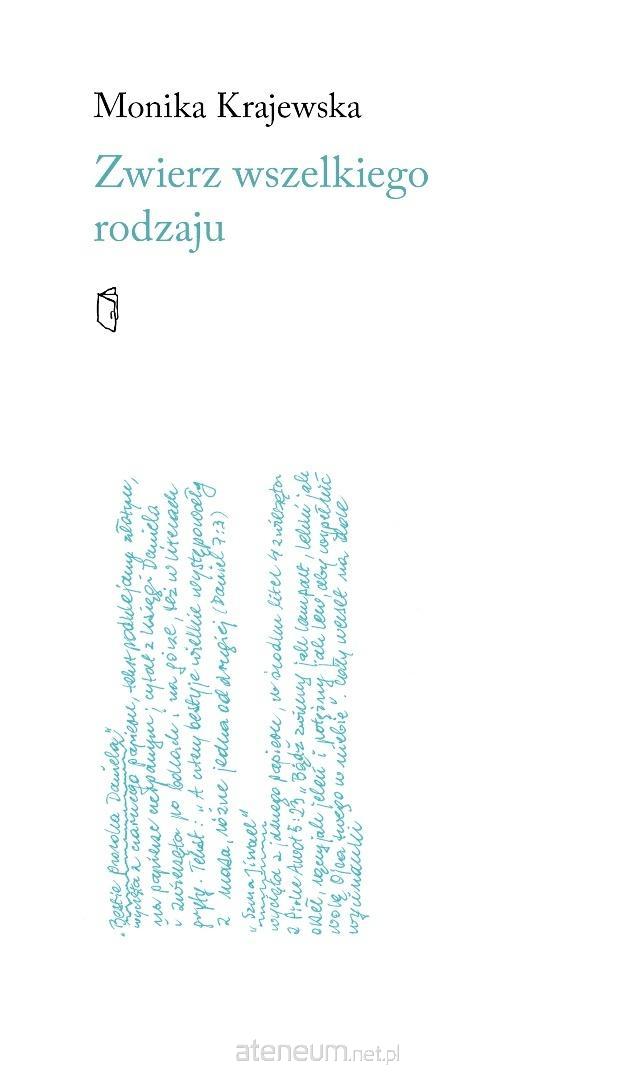 Monika Krajewska
Zwierz wszelkiego
rodzaju
"Bestie proroka Daniela"
wycięta z czarnego papieru, tekst podklejany złotym,
na papierze czerpanym; cytat z Księgi Daniela
i zwierzęta po bokach i na górze, też w literach
gryfy. Tekst: "A cztery bestyje wielkie występowały
z morza, różne jedna od drugiej (Daniel 7:3)
"Szma Jisrael"
wycięta z jasnego papieru, w środku liter 4 zwierzęta
z Pirke Awot 5:23 "Bądź zwinny jak lampart, lekki jak
orzeł, rączy jak jeleń i potężny jak lew, aby wypełnić
wolę Ojca twego w niebie". Cały werset na dole
wycinanki
ateneum.net.pl